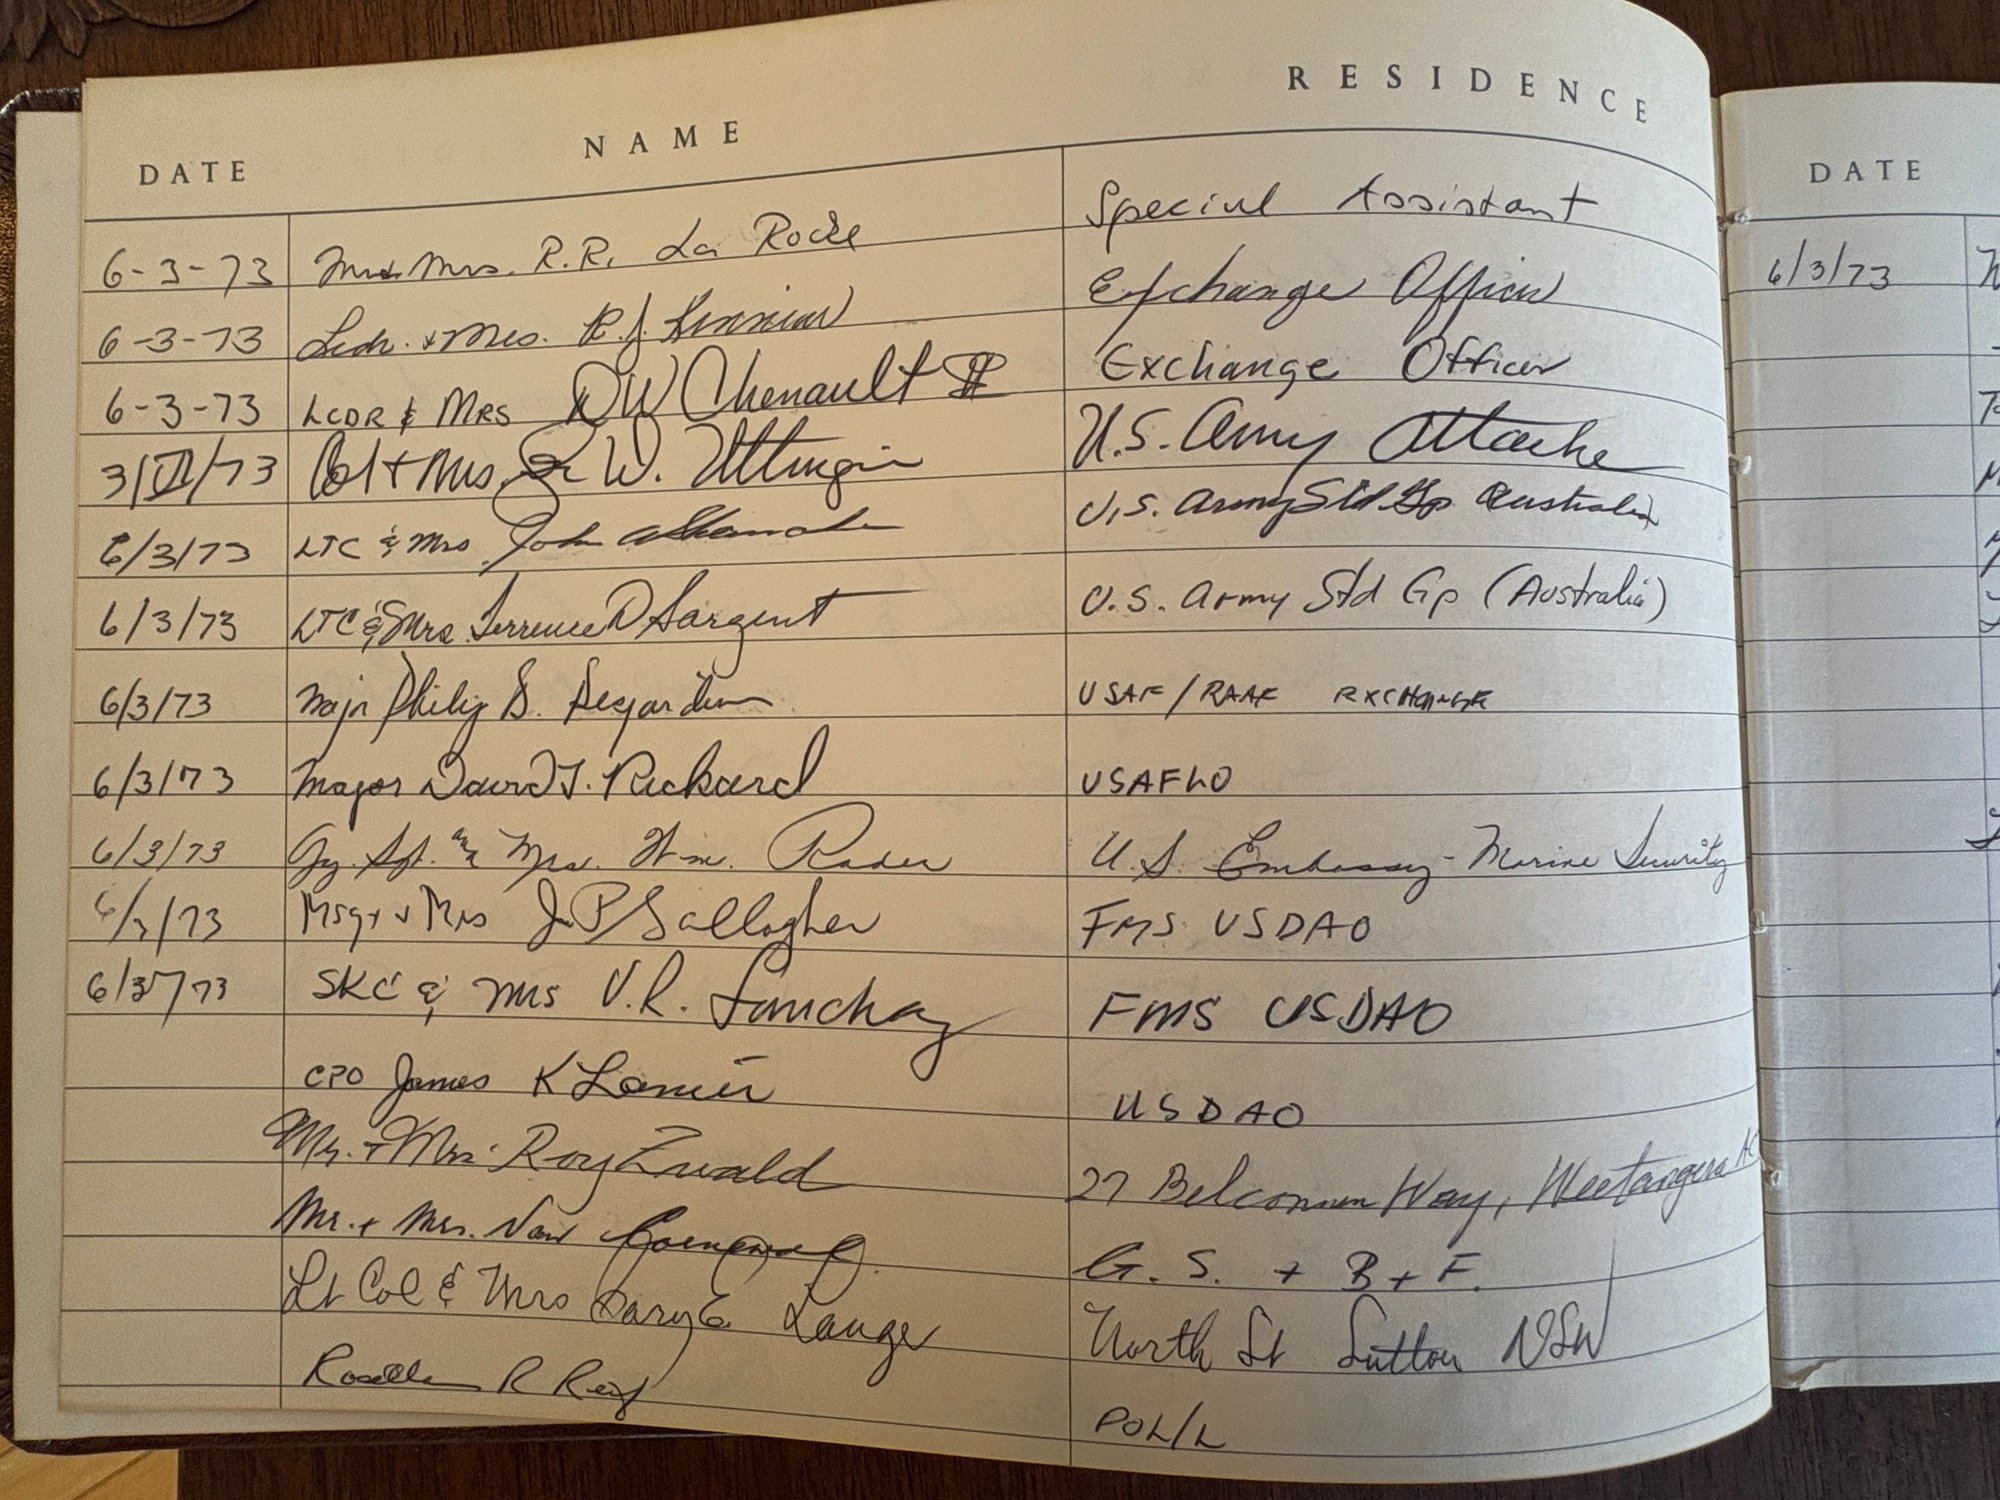 DATE NAME RESIDENCE
6-3-73 Mr & Mrs. R.R. La Rocke Special Assistant
6-3-73 Lcdr. & Mrs. R.J. Exchange Officer
6-3-73 LCDR & MRS DW Chenault III Exchange Officer
3/VI/73 Col + Mrs. W. U.S. Army Attache
6/3/73 LTC & Mrs John U.S. Army Std Gp Australia
6/3/73 LTC & Mrs. Terrence D Sargent U.S. Army Std Gp (Australia)
6/3/73 Majr Philip S. Desjardins USAF/RAAF EXCHANGE
6/3/73 Major David T. Rickard USAFLO
6/3/73 Gy. Sgt. and Mrs. Wm. Rader U.S. Embassy - Marine Security
6/3/73 Msgt & Mrs J.P. Gallagher FMS USDAO
6/3/73 SKC & Mrs V.R. FMS USDAO
CPO James K Lanier USDAO
Mr. + Mrs. Roy Zwald 27 Belconnen Way, Weetangera
Mr. + Mrs. G.S. + B + F.
Lt Col & Mrs Gary E. Lange North St Sutton NSW
R POL/L
DATE
6/3/73